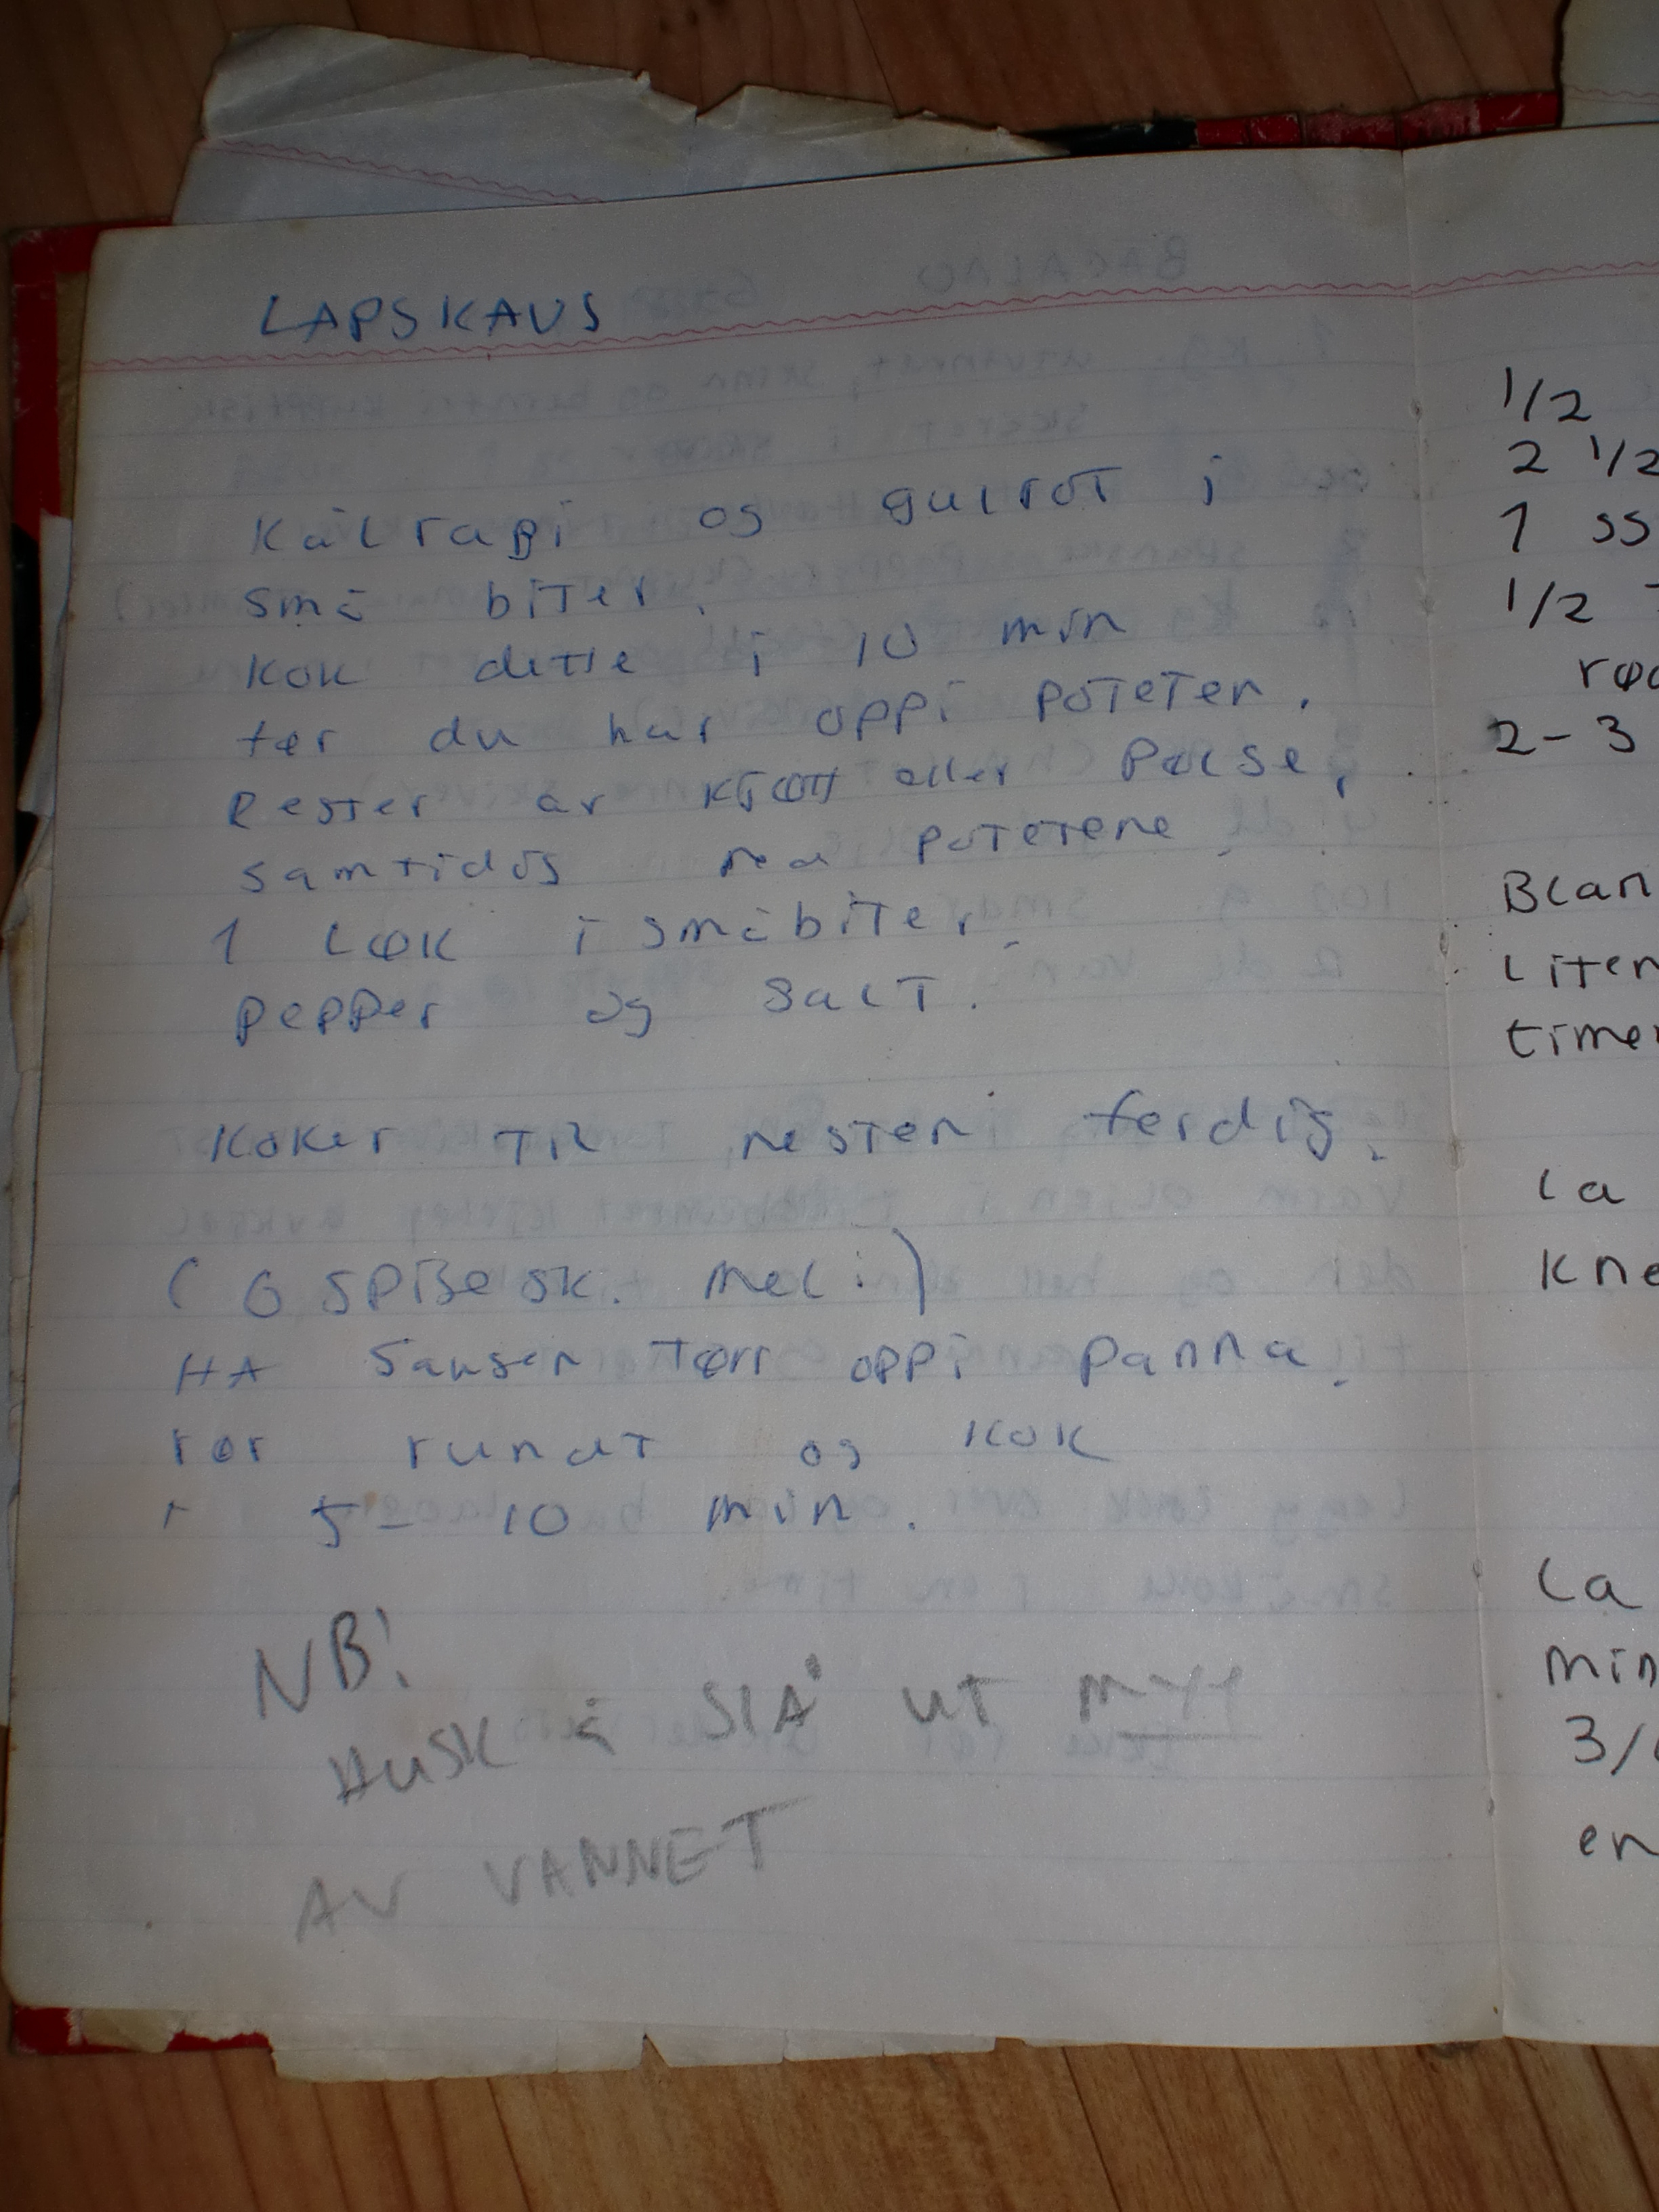 LAPSKAUS
Kålrabi og gulrot i
små biter.
Kok dette i 10 min
før du har oppi poteter.
Rester av kjøtt eller pølse,
samtidig med potetene.
1 Løk i småbiter.
pepper og salt.
Koker til nesten ferdig.
(6 spisesk. mel:)
HA sausen tørr oppi panna.
rør rundt og kok
i 5-10 min.
NB!
HUSK å SLÅ UT MYE
AV VANNET
1/2
2 1/2
1 ss
1/2
2-3
Blan
Liten
timer
La
Kne
La
min
3/
en